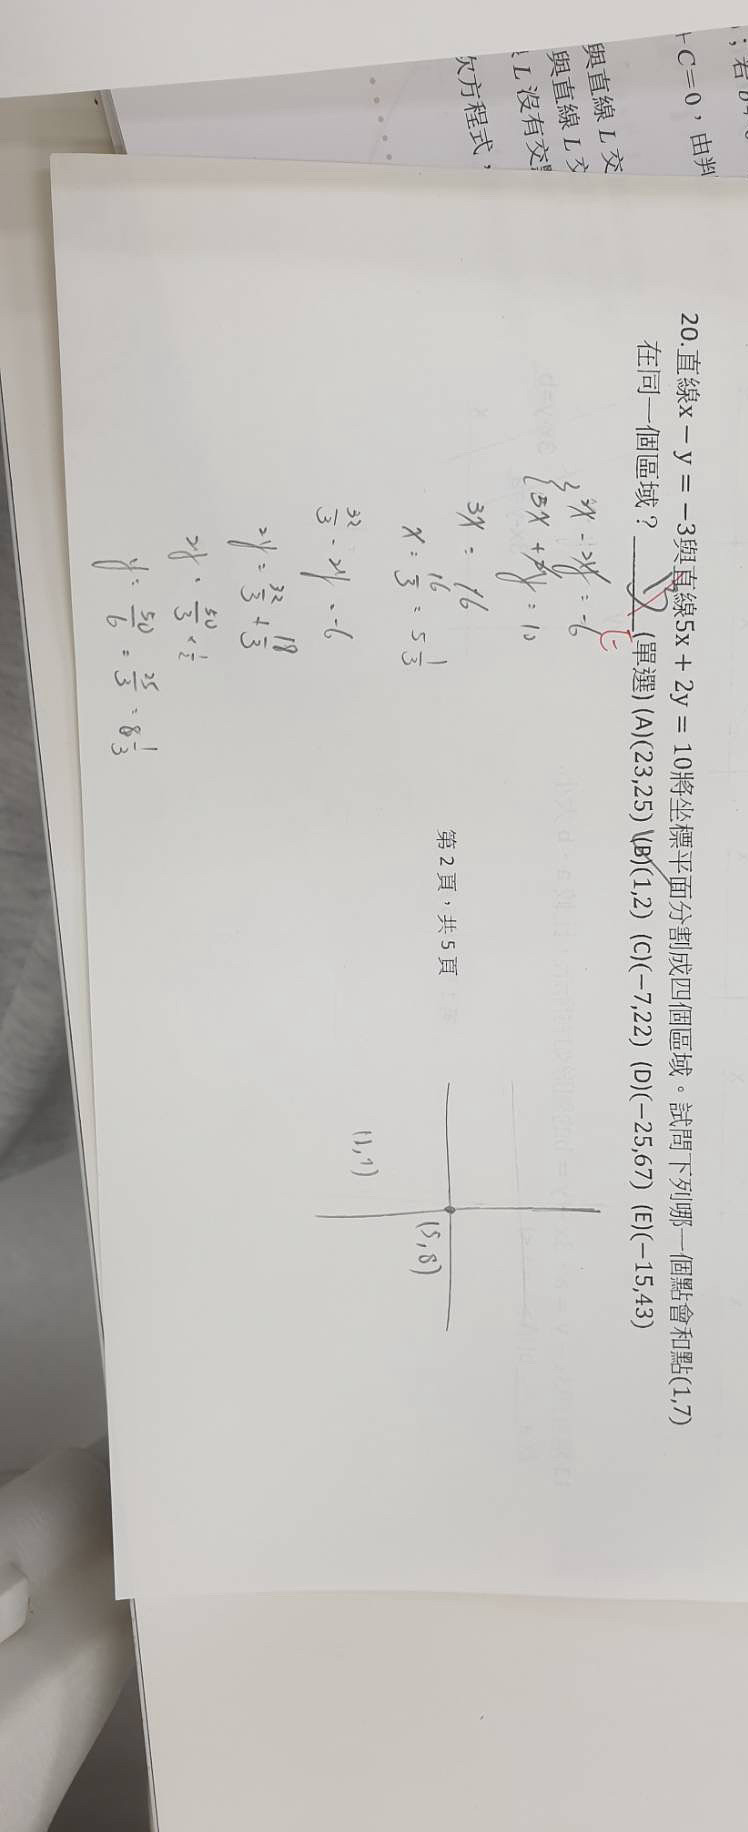 ；若
+C=0，由判
與直線 L 交
與直線 L 交
L 沒有交
欠方程式，
20.直線x − y = −3與直線5x + 2y = 10將坐標平面分割成四個區域。試問下列哪一個點會和點(1,7)
在同一個區域？ (單選) (A)(23,25) (B)(1,2) (C)(−7,22) (D)(−25,67) (E)(−15,43)
2x - 2y = -6
5x + 2y = 10
3x = 16
x = 16/3 = 5 1/3
32/3 - 2y = -6
2y = 32/3 + 18/3
2y = 50/3 × 1/2
y = 50/6 = 25/3 = 8 1/3
(5,8)
(1,7)
第 2 頁，共 5 頁